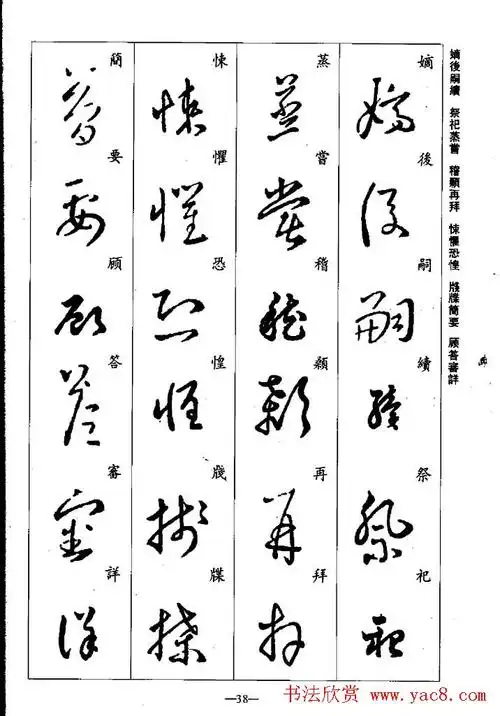 嫡後嗣續 祭祀蒸嘗 稽顙再拜 悚懼恐惶 牋牒簡要 顧答審詳
嫡後嗣續祭祀
蒸嘗稽顙再拜
悚懼恐惶牋牒
簡要顧答審詳
—38—
书法欣赏 www.yac8.com